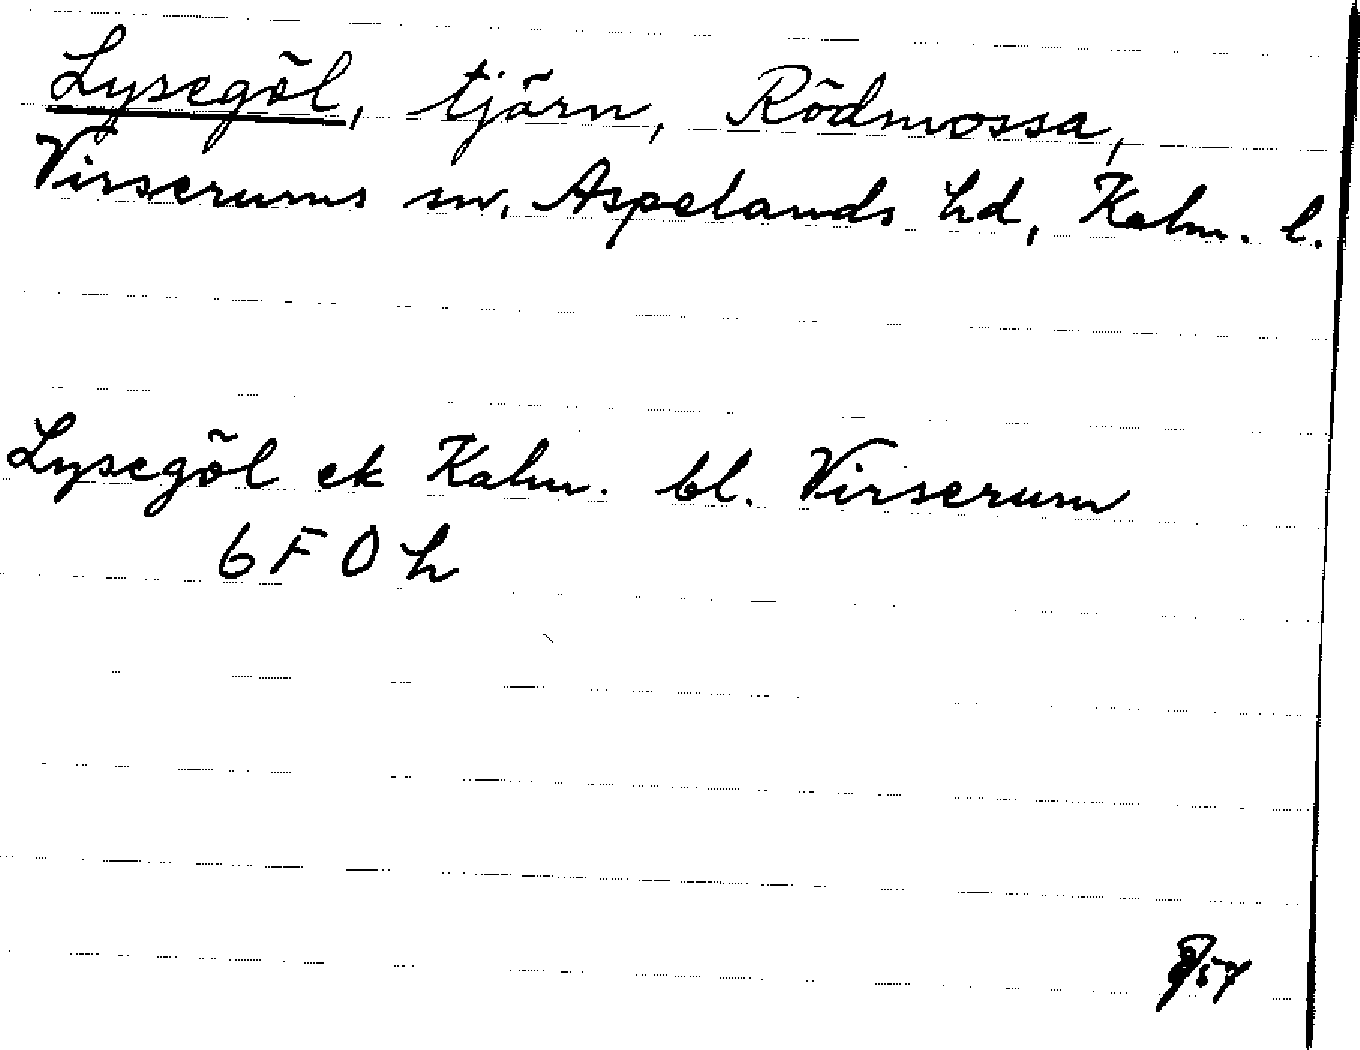 Lysegöl, tjärn, Rödmossa,
Virserums sn, Aspelands hd, Kalm. l.
Lysegöl ek Kalm. bl. Virserum
6 F 0 h